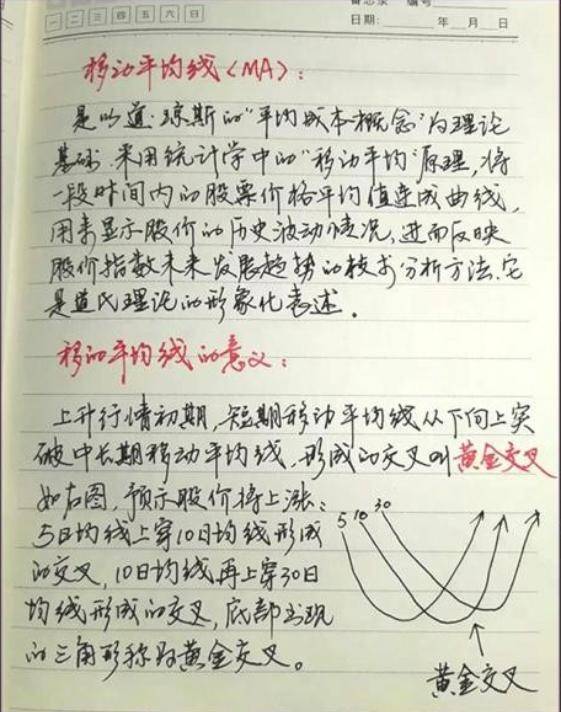 备忘录 编号
一 二 三 四 五 六 日
日期: 年 月 日
移动平均线<MA>:
是以道·琼斯的“平均成本概念”为理论
基础,采用统计学中的“移动平均”原理,将
一段时间内的股票价格平均值连成曲线,
用来显示股价的历史波动情况,进而反映
股价指数未来发展趋势的技术分析方法.它
是道氏理论的形象化表述。
移动平均线的意义:
上升行情初期,短期移动平均线从下向上突
破中长期移动平均线,形成的交叉叫黄金交叉
如右图,预示股价将上涨:
5日均线上穿10日均线形成
的交叉,10日均线再上穿30日
均线形成的交叉,底部出现
的三角形称为黄金交叉。
5 10 30
黄金交叉